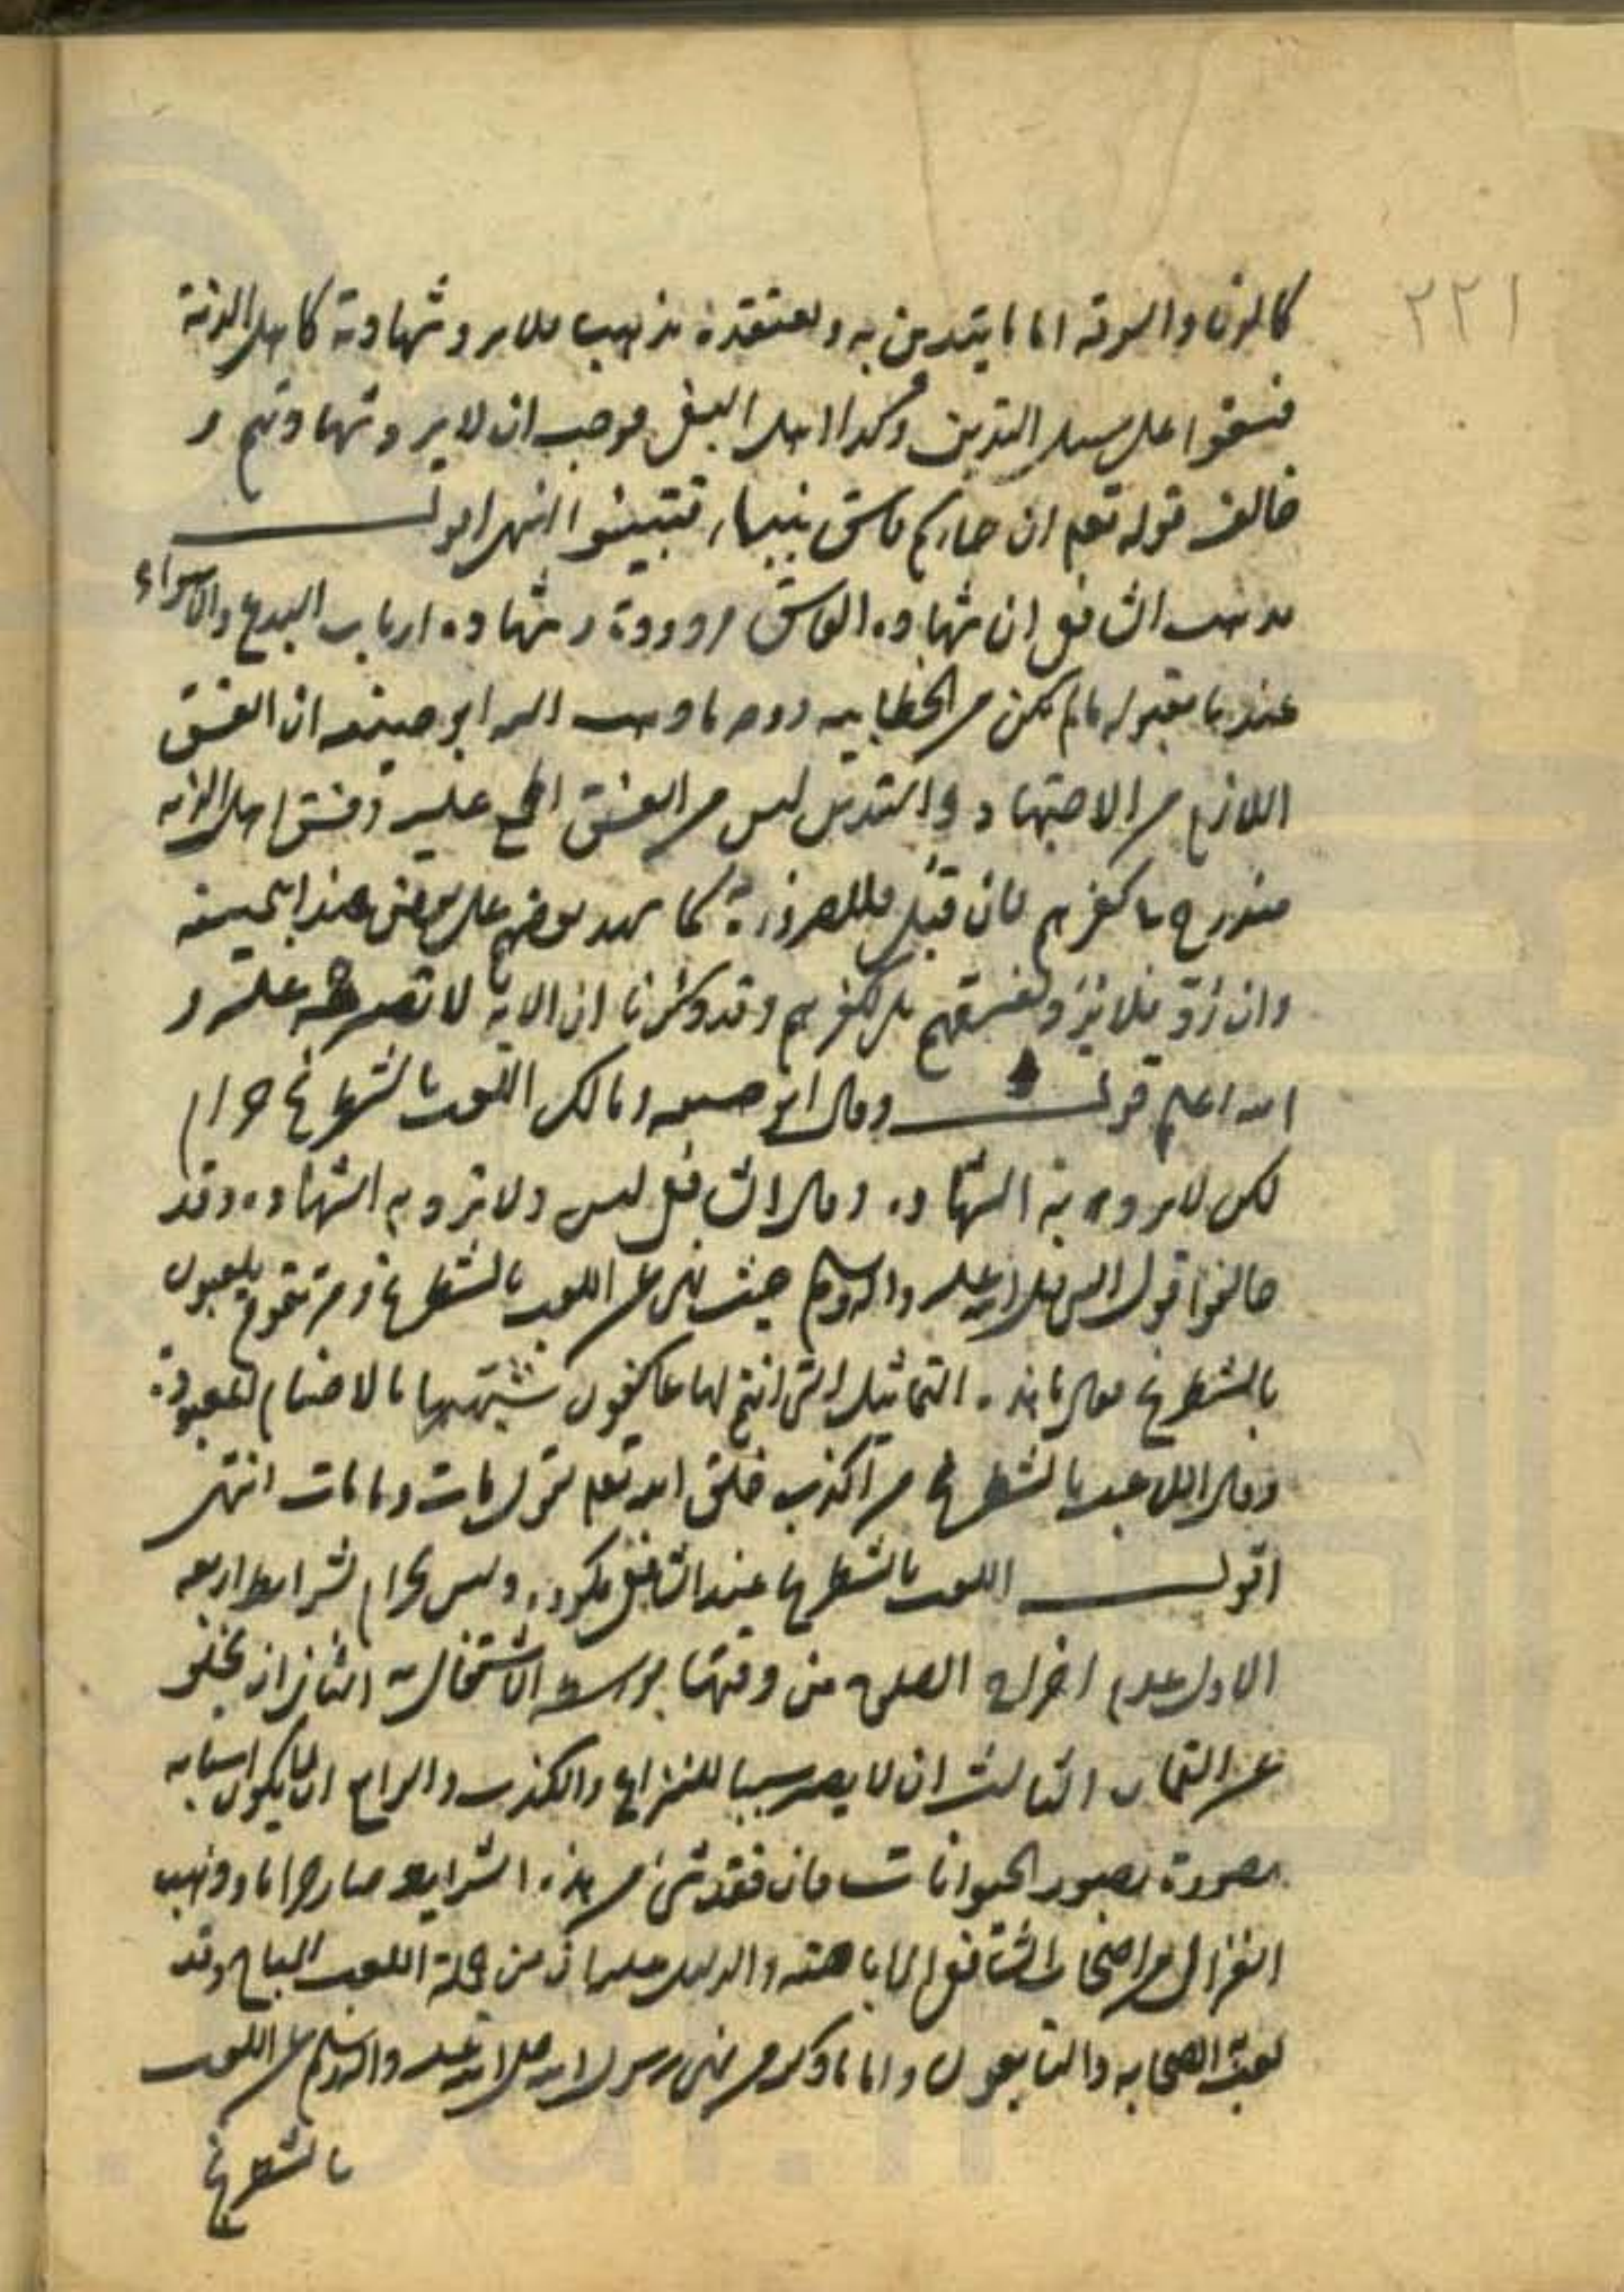 ٢٢١
كالزنا والسرقة اما ما يتدين به ويعتقده مذهبا فلا يرد شهادته كاهل الذمة
فسقوا على سبيل التدين وكذا اهل البغي فوجب ان لا يرد شهادتهم و
خالف قوله تعم ان جاءكم فاسق بنبأ فتبينوا انتهى اقول
مذهب الشافعي ان شهادة الفاسق مردودة وشهادة ارباب البدع والاهواء
عنده مقبولة ما لم يكن من الخطابية ووجه ما ذهب اليه ابو حنيفه ان الفسق
اللازم من الاجتهاد والتدين ليس من الفسق عليه وفسق اهل الذمه
مندرج بكفرهم فان قبل فللضرورة كما شهد بعضهم على بعض عند ابي حنيفه
وان رد فلا يرد لفسقهم بل لكفرهم وقد ذكرنا ان الاية لا تصير حجة عليه و
الله اعلم قوله وقال ابو حنيفه ومالك اللعب بالشطرنج حرام
لكن لا يرد به الشهادة وقال الشافعي ليس ولا يرد به الشهادة وقد
خالفوا قول النبي صلى الله عليه واله وسلم حيث نهى عن اللعب بالشطرنج ومر بقوم يلعبون
بالشطرنج فقال ما هذه التماثيل التي انتم لها عاكفون شبهها بالاصنام المعبودة
وقال اللاعب بالشطرنج من اكذب خلق الله تعم يقول مات وما مات انتهى
اقول اللعب بالشطرنج عند الشافعي مكروه وليس بحرام لشرايط اربعه
الاول عدم اخراج الصلوة من وقتها بواسطه الاشتغال به الثاني ان يخلو
عن القمار الثالث ان لا يصير سببا للنزاع والكذب والرابع ان لا يكون اسبابه
مصورة بصور الحيوانات فان فقد شئ من هذه الشرايط صار حراما وذهب
الغزالي من اصحاب الشافعي الى اباحته والدليل عليه انه من جملة اللعب المباح وقد
لعبه الصحابه والتابعون واما ما ذكر من نهى رسول الله صلى الله عليه واله وسلم عن اللعب
بالشطرنج